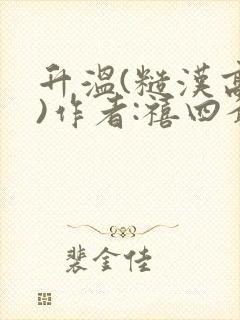 升温(糙漢高
)作者:禧四爺
裴金佳